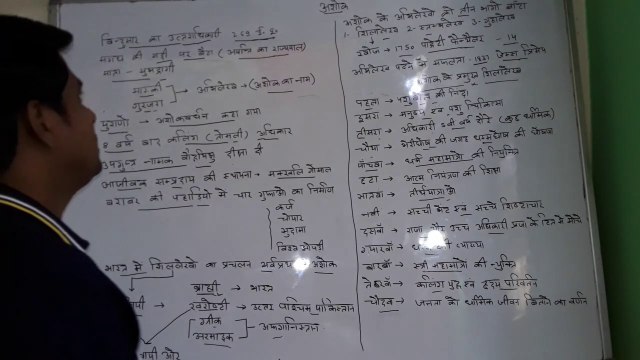 अशोक
बिन्दुसार का उत्तराधिकारी 269 ई. पू.
मगध की गद्दी पर बैठा (अवन्ति का राज्यपाल)
माता - सुभद्रांगी
मास्की
गुजरा
अभिलेख → (अशोक का नाम)
पुराणो → अशोकवर्धन कहा गया
8 वर्ष बाद कलिंग (तोसली) अधिकार
उपगुप्त नामक बौद्धभिक्षु दीक्षा दी
आजीवक सम्प्रदाय की स्थापना → मक्खलि गोसाल
बराबर की पहाडियो मे चार गुफाओ का निर्माण
कर्ज
चोपार
सुदामा
विश्व झोपडी
भारत मे शिलालेखो का प्रचलन सर्वप्रथम → अशोक
ब्राह्मी → भारत
खरोष्ठी → उत्तर पश्चिम पाकिस्तान
ग्रीक
अरमाइक
अफगानिस्तान
अशोक के अभिलेखो को तीन भागो बांटा
1- शिलालेख 2- स्तम्भलेख 3- गुहालेख
खोज → 1750 पाद्रेटी फेन्थैलर - 14
अभिलेख पढने मे सफलता - 1837 जेम्स प्रिंसेप
अशोक के प्रमुख शिलालेख
पहला → पशुबलि की निन्दा
दूसरा → मनुष्य एवं पशु चिकित्सा
तीसरा → अधिकारी हर 5 वर्ष दौरे (कुछ धार्मिक)
चौथा → भेरीघोष की जगह धम्मघोष की घोषणा
पांचवा → धर्म महामात्रो की नियुक्ति
छठा → आत्म नियंत्रण की शिक्षा
सातवा → तीर्थयात्राओ
नवी → सच्ची भेंट एवं सच्चे शिष्टाचार
दसवा → राजा और उच्च अधिकारी प्रजा के हित मे सोचे
ग्यारवा → धम्म की व्याख्या
बारवा → स्त्री महामात्रो की नियुक्ति
तेहरवा → कलिंग युद्ध एवं हृदय परिवर्तन
चौदवा → जनता को धार्मिक जीवन बिताने का वर्णन